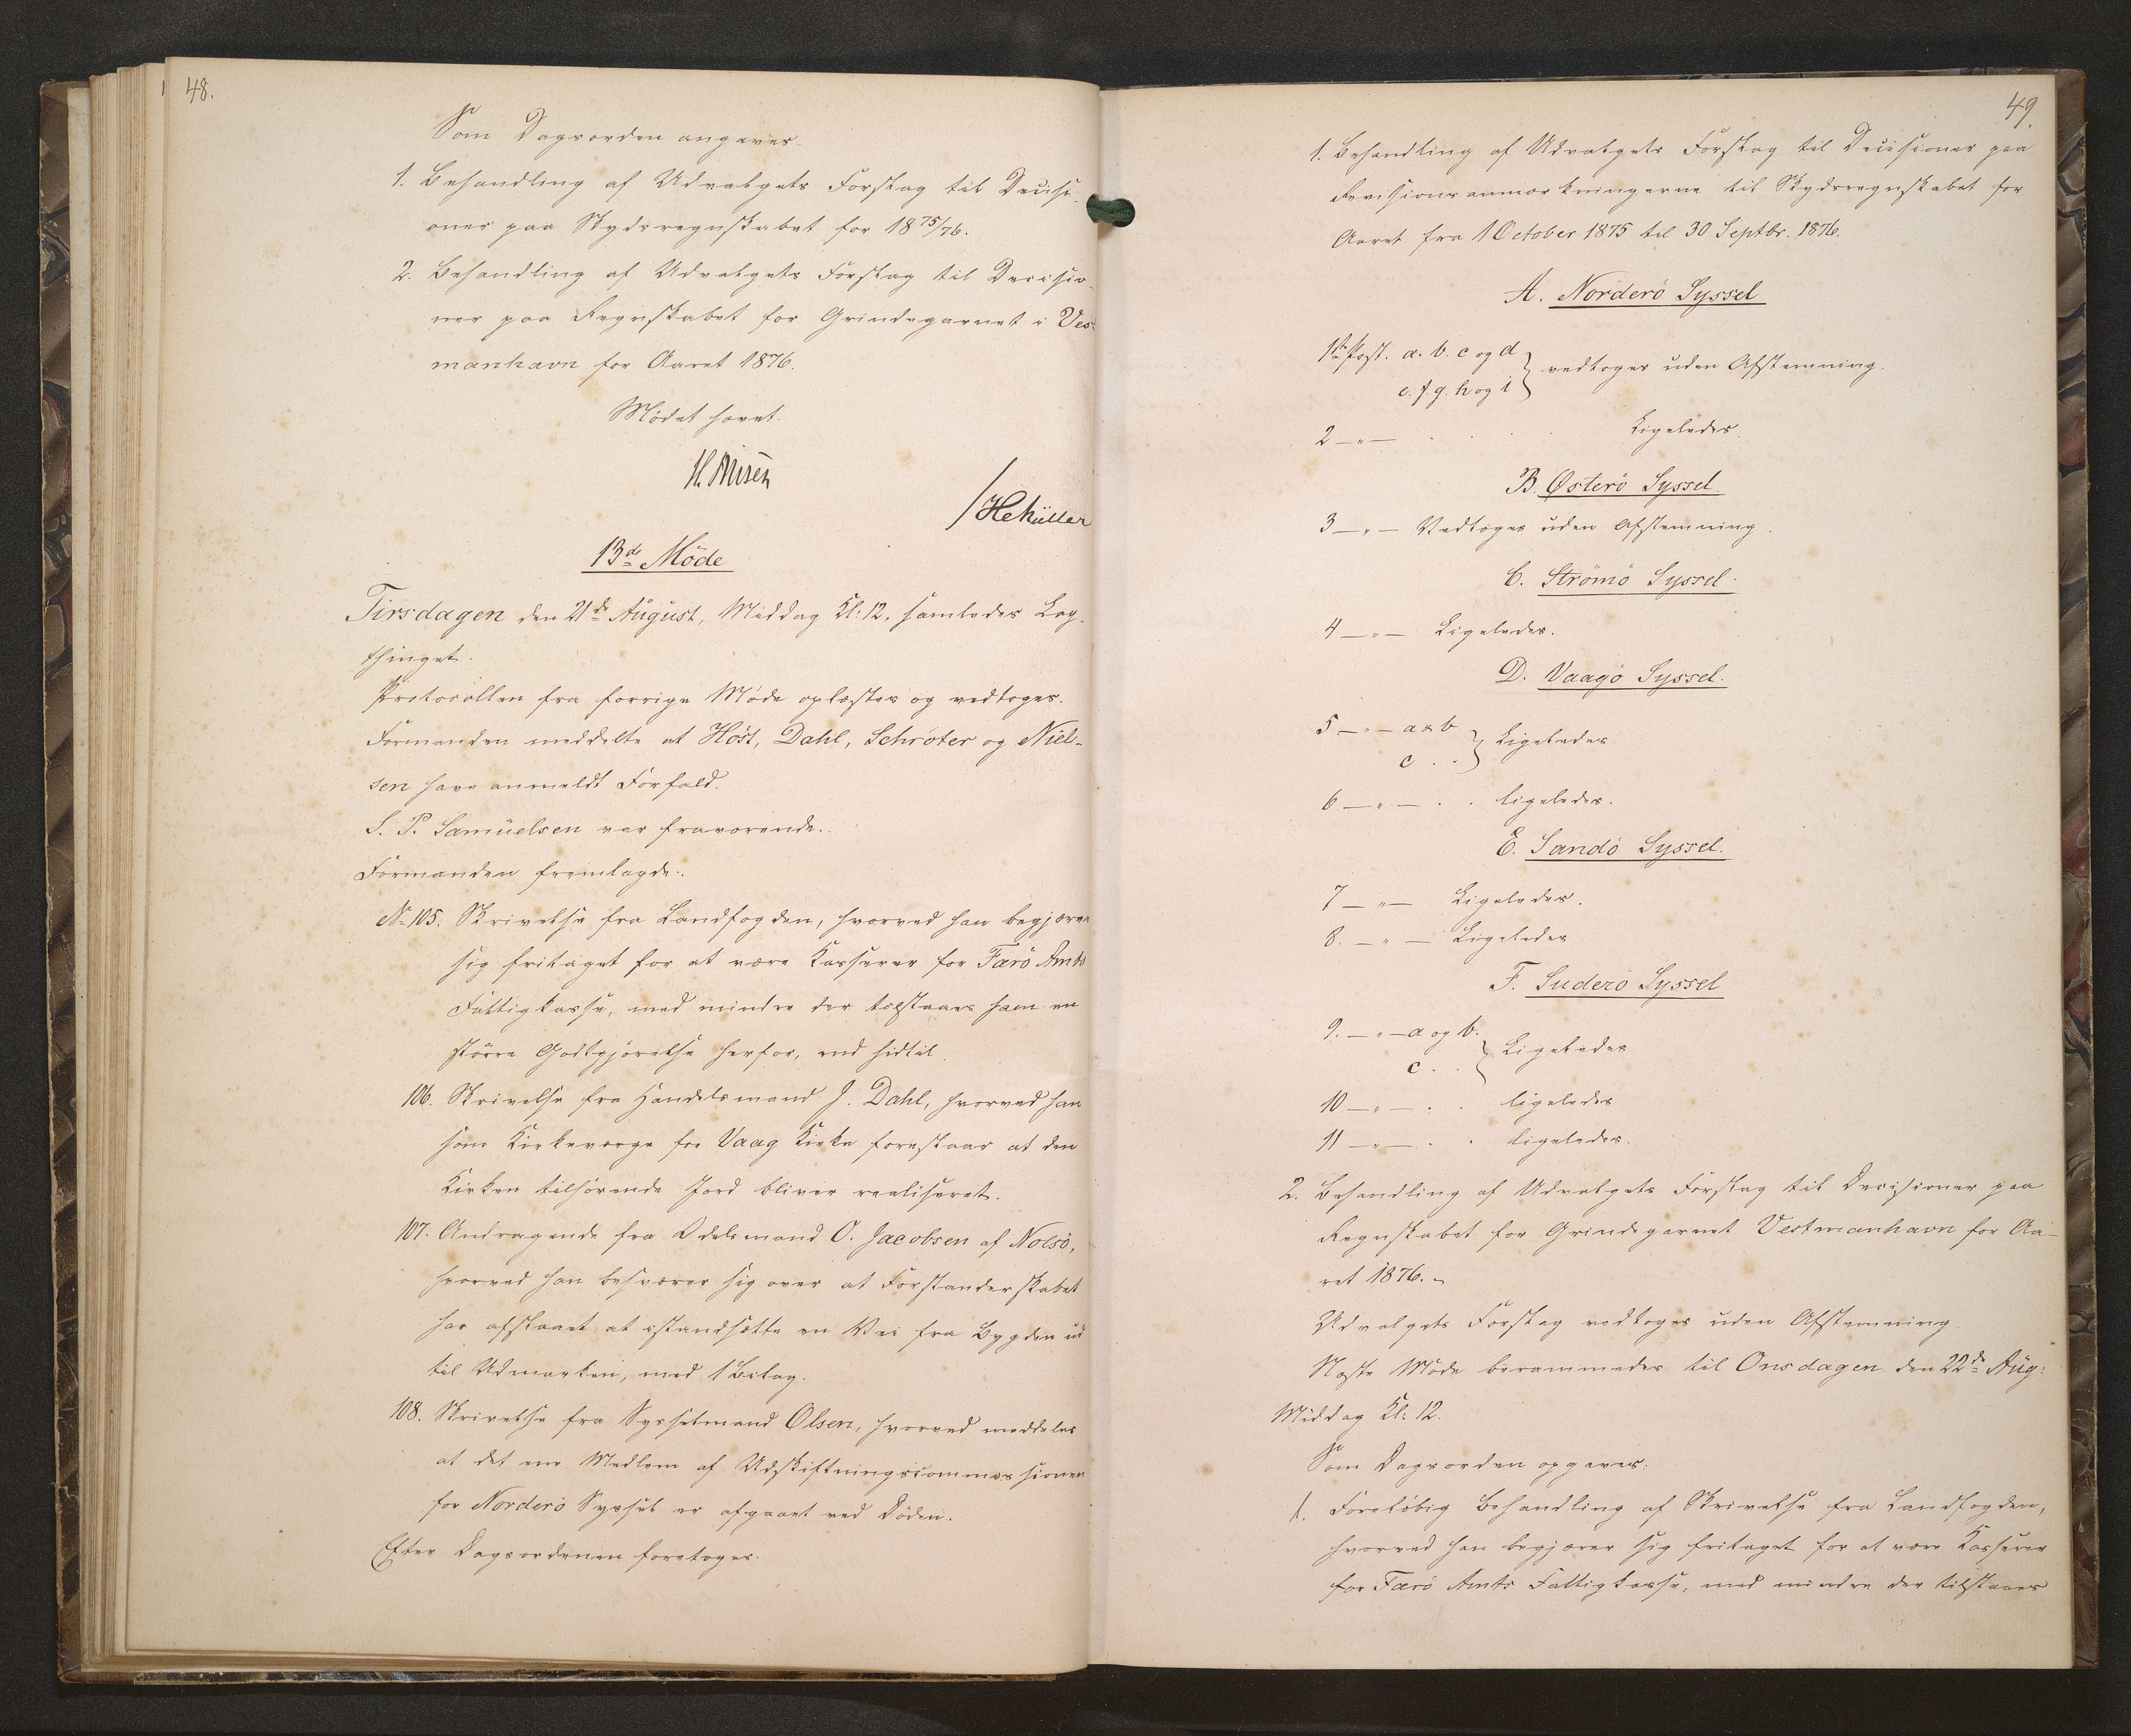 48.
Som Dagsorden angaves.
1. Behandling af Udvalgets Forslag til Decisi-
oner paa Skydsregnskabet for 1875/76.
2. Behandling af Udvalgets Forslag til Decisio-
ner paa Regnskabet for Grindegarnet i Vest
manhavn for Aaret 1876.
Mødet hævet.
/HCMüller
13de Möde
Tirsdagen den 21de August, Middag Kl: 12, samledes Lag-
thinget.
Protocollen fra forrige Møde oplæstes og vedtoges.
Formanden meddelte at Höst, Dahl, Schröter og Niel-
sen have anmeldt Forfald.
S. P. Samuelsen var fraværende.
Formanden fremlagde:
No 105. Skrivelse fra Landfogden, hvorved han begjærer
sig fritaget for at være Kasserer for Færö Amts
Fattigkasse, med mindre der tilstaaes ham en
större Godtgjörelse herfor, end hidtil.
106. Skrivelse fra Handelsmand J. Dahl, hvorved han
som Kirkeværge for Vaag Kirke foreslaar at den
Kirken tilhörende Jord bliver realiseret.
107. Andragende fra Odelsmand O. Jacobsen af Nolsö,
hvorved han besværer sig over at Forstanderskabet
har afslaaet at istandsætte en Vei fra Bygden ud
til Udmarken, med 1 Bilag.
108. Skrivelse fra Sysselmand Olsen, hvorved meddeles
at det ene Medlem af Udskiftningscommissionen
for Norderö Syssel er afgaaet ved Döden.
Efter Dagsordenen foretoges.
49.
1. Behandling af Udvalgets Forslag til Decisioner paa
Revisionsanmærkningerne til Skydsregnskabet for
Aaret fra 1 October 1875 til 30 Septbr. 1876.
A. Norderö Syssel
1ste Post. a. b. c og d
e. f. g. h og i } vedtoges uden Afstemning.
2 — " — . . . Ligeledes
B. Østerö Syssel.
3 — " — Vedtoges uden Afstemning.
C. Strömö Syssel.
4 — " — Ligeledes.
D. Vaagö Syssel.
5 — " — a & b
c . . } Ligeledes
6 — " — . . ligeledes.
E. Sandö Syssel.
7 — " — Ligeledes.
8. — " — Ligeledes
F. Suderö Syssel
9. — " — a og b.
c . . } Ligeledes
10 — " — . . ligeledes
11 — " — . . ligeledes.
2. Behandling af Udvalgets Forslag til Decisioner paa
Regnskabet for Grindegarnet Vestmanhavn for Aa-
ret 1876. -
Udvalgets Forslag vedtoges uden Afstemning
Næste Möde berammedes til Onsdagen den 22de Aug:
Middag Kl: 12.
Som Dagsorden opgaves:
1. Forelöbig Behandling af Skrivelse fra Landfogden,
hvorved han begjærer sig fritaget for at være Kasserer
for Færö Amts Fattigkasse, med mindre der tilstaaes